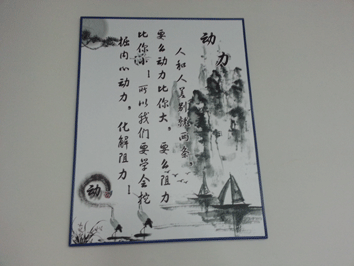 动力
人和人差别就两条，
要么动力比你大，要么阻力
比你小！可以我们要学会挖
掘内心动力，化解阻力！
动